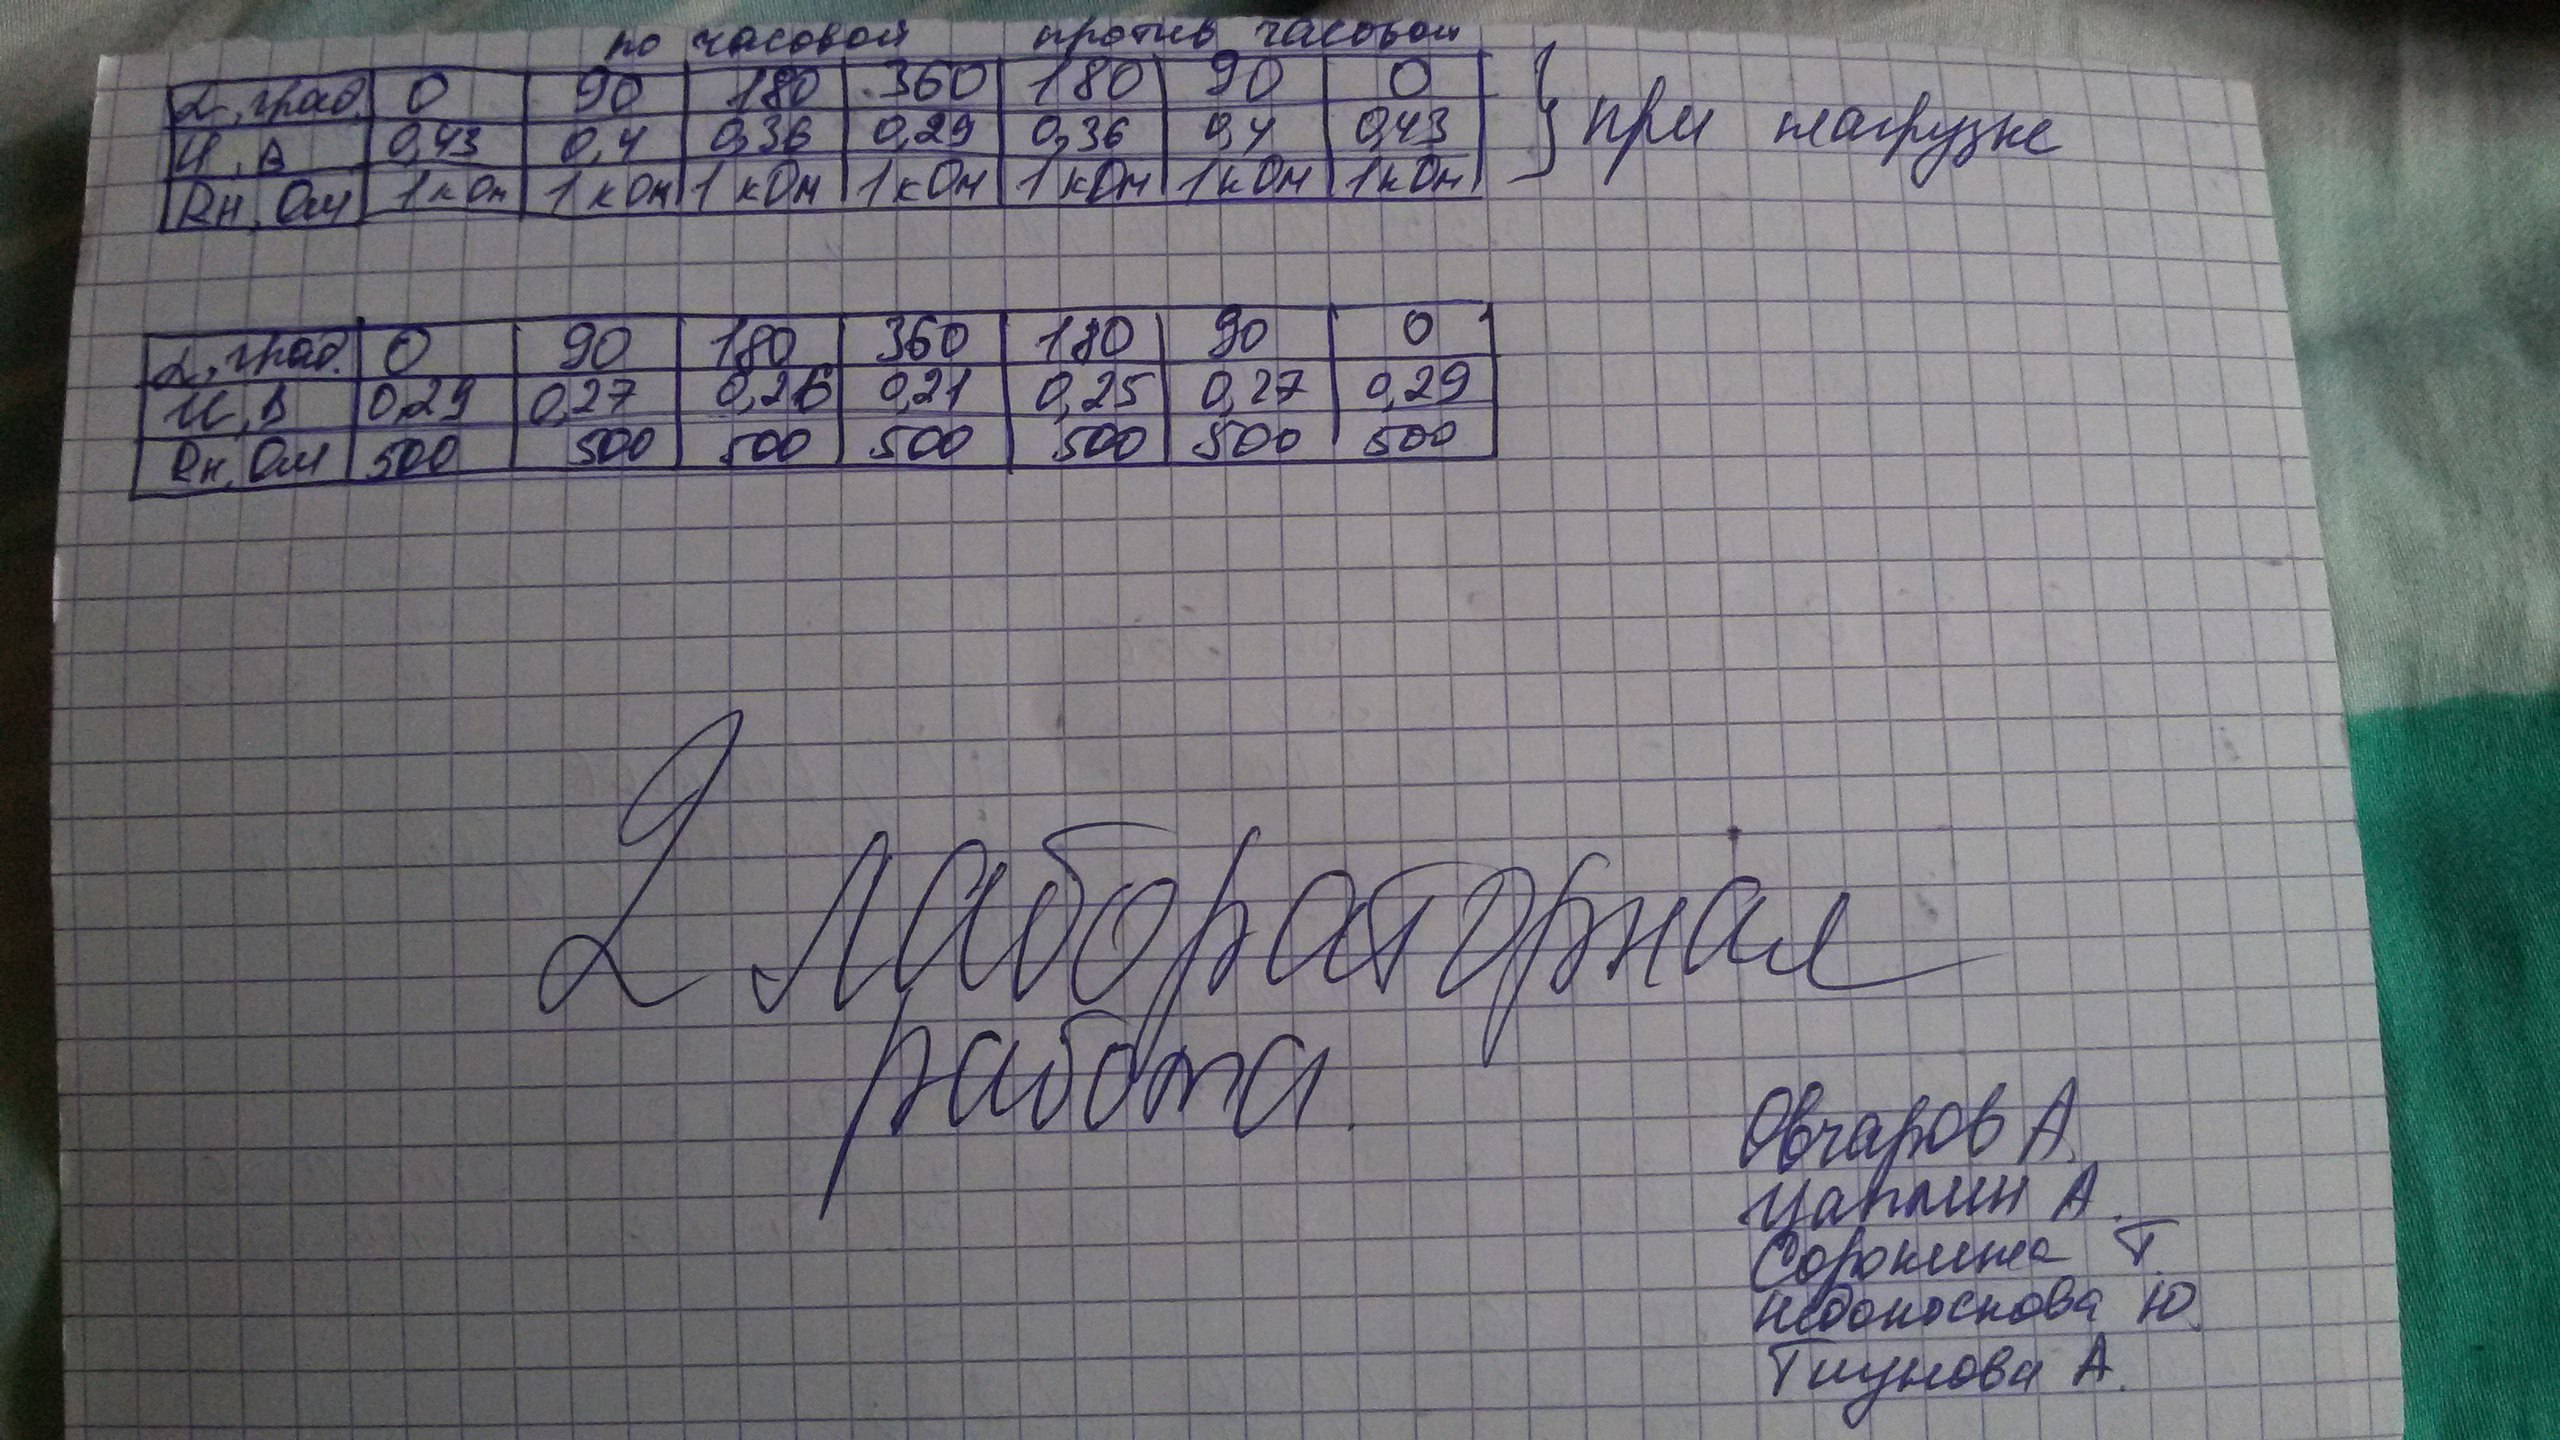 по часовой против часовой
α, град. 0 90 180 360 180 90 0
U, В 0,43 0,4 0,36 0,29 0,36 0,4 0,43
Rн, Ом 1 кОм 1 кОм 1 кОм 1 кОм 1 кОм 1 кОм 1 кОм
} при нагрузке
α, град. 0 90 180 360 180 90 0
U, В 0,29 0,27 0,26 0,21 0,25 0,27 0,29
Rн, Ом 500 500 500 500 500 500 500
2 лабораторная
работа.
Овчаров А.
Цаплин А.
Сорокина Т.
Недоноскова Ю.
Тиунова А.